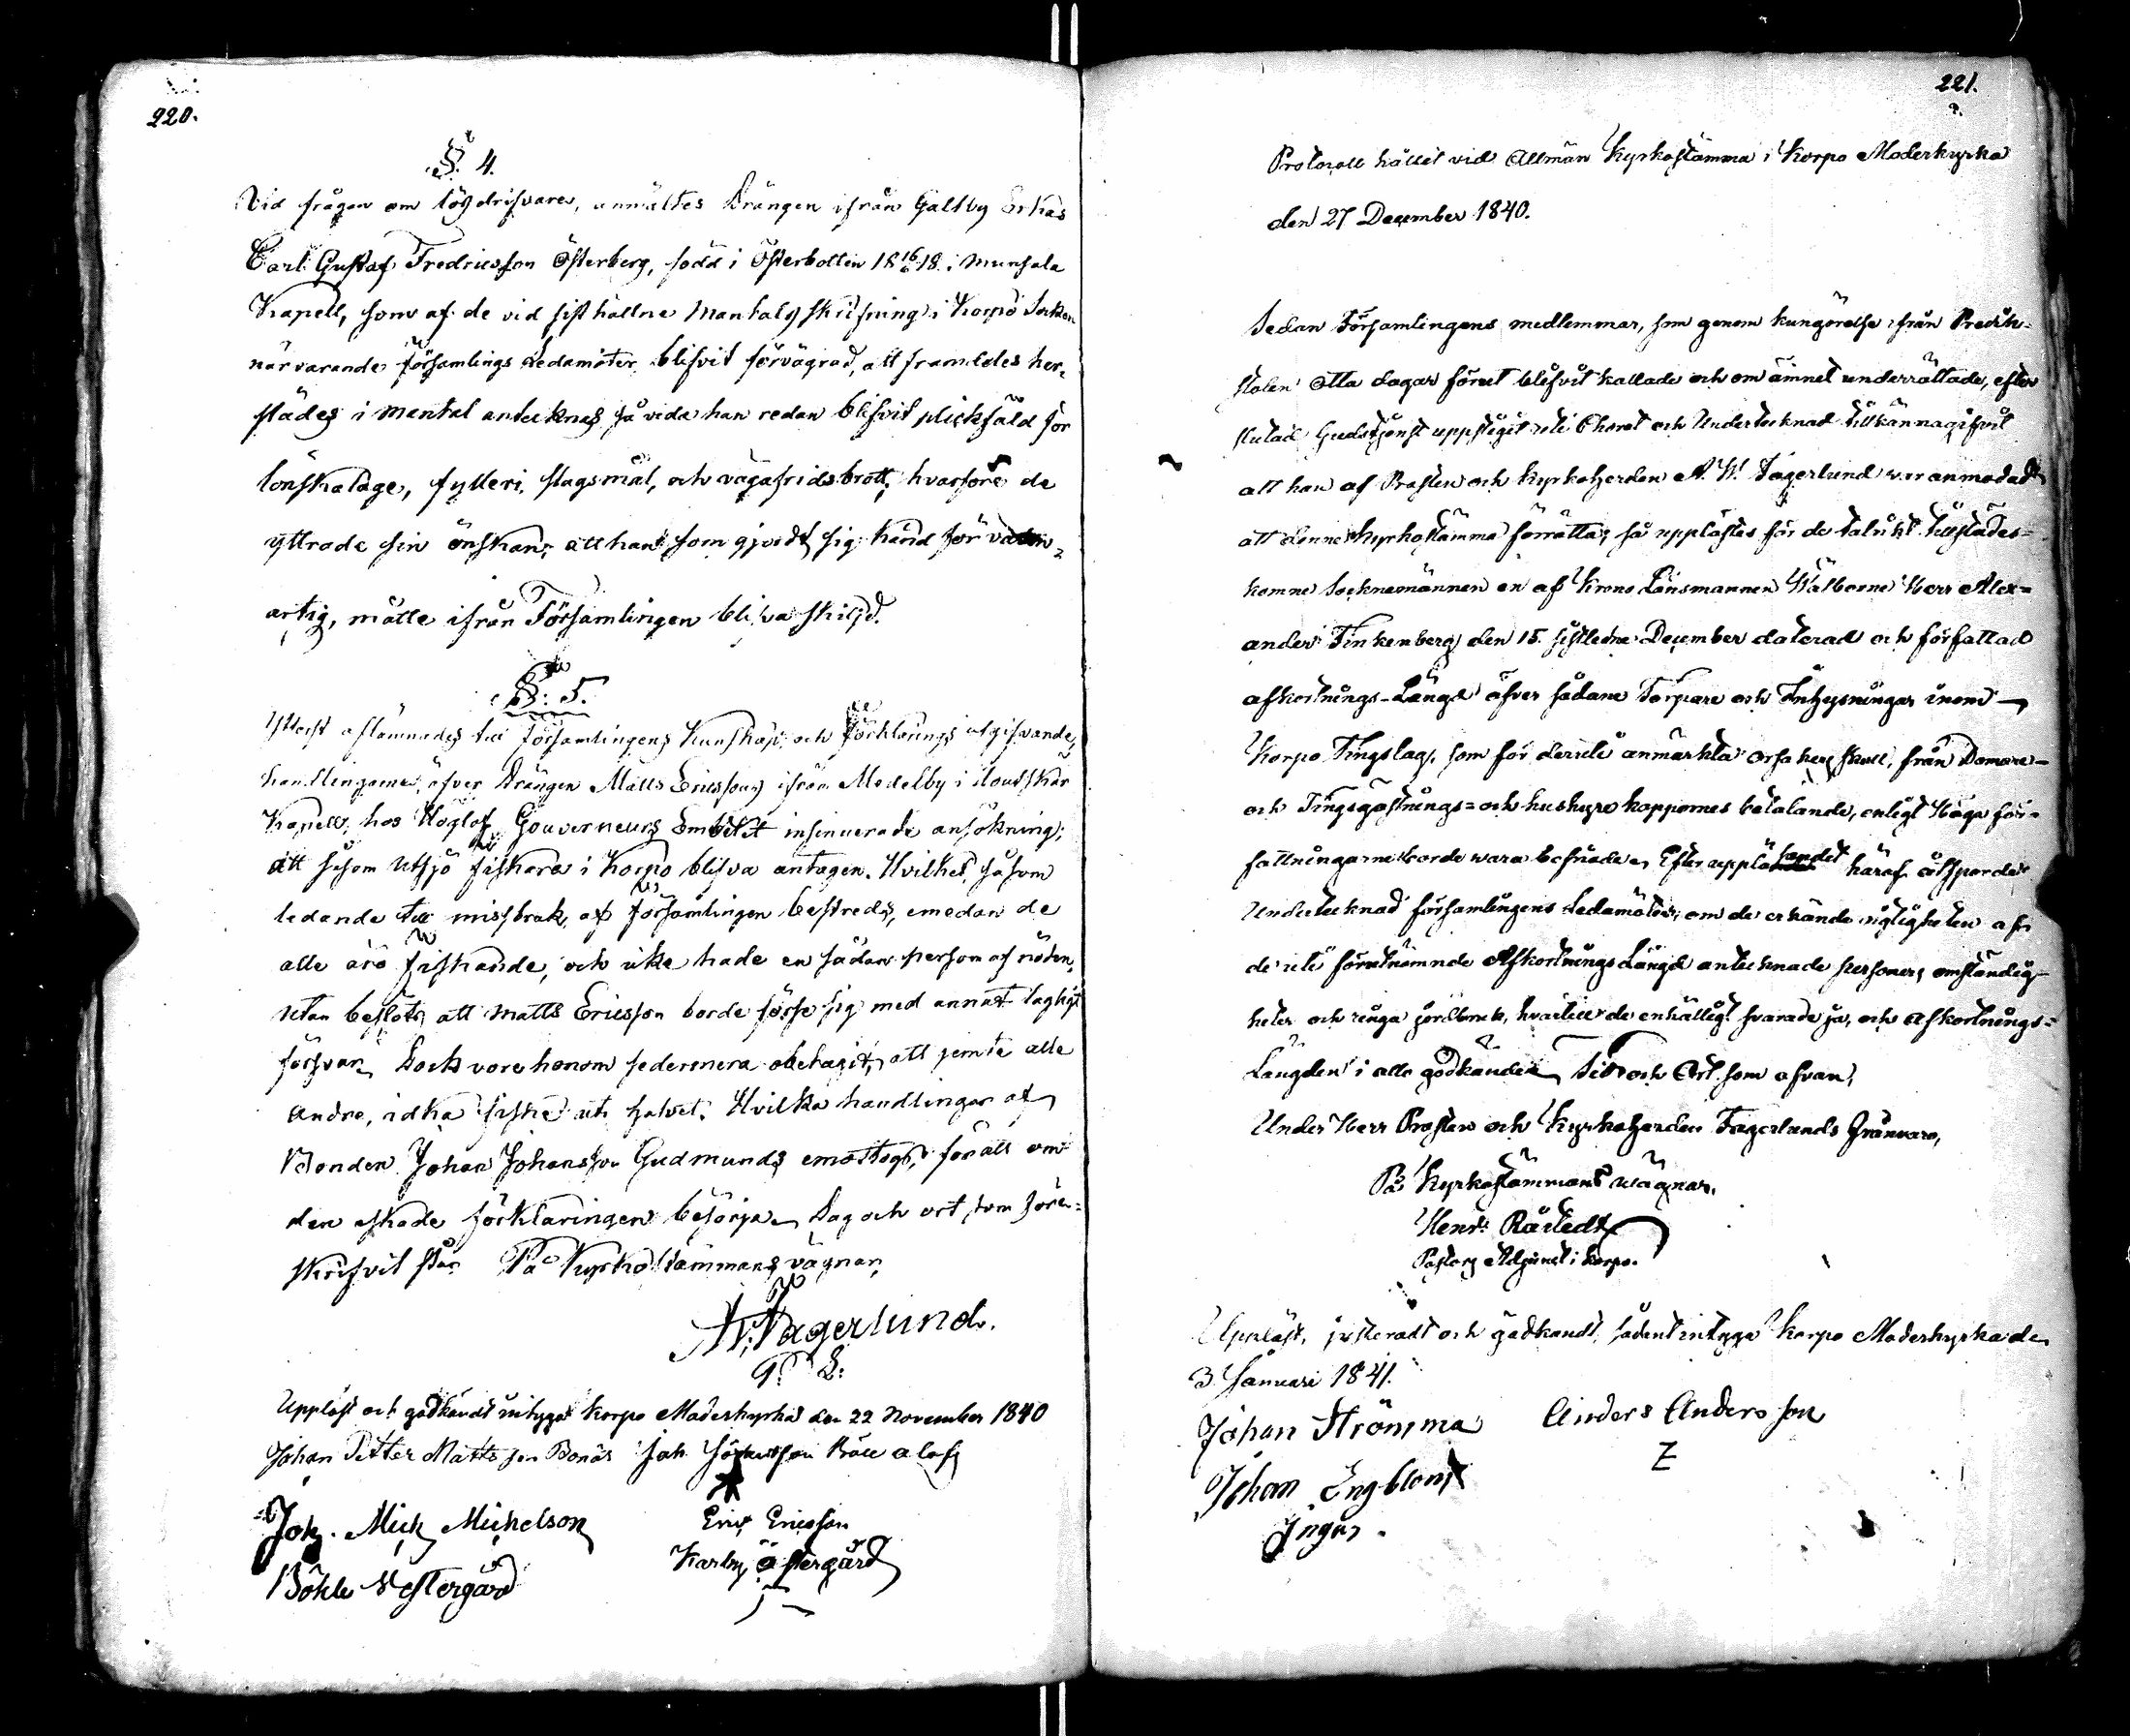 220.
§. 4.
Vid frågan om lösdrifvare, anmältes Drängen ifrån Galtby Erkas
Carl Gustaf Fredricsson Österberg, född i Österbotten 18 16/6 18. i Munsala
Kapell, som af de vid sist hållne Mantals skrifning i Korpo Socken
närvarande Församlings Ledamöter blifvit förvägrad, att framdeles her,
städes i Mantal antecknas så vida han redan blifvit pliktfäld för
lönskaläge, fylleri, slagsmål, och vägafridsbrott; hvarföre de
yttrade sin önskan; att han som gjordt sig känd för van-
artig, måtte ifrån Församlingen blifva skiljd.
§. 5.
Ytterst aflämnades till församlingens Kunskap och förklarings afgifvande,
handlingarne öfver Drängen Matts Ericssons ifrån Modelby i Houtskär
Kapell, hos Höglof. Gouverneurs Embetet insinuerade ansökning;
att såsom utsjö fiskare i Korpo blifva antagen. Hvilket, såsom
ledande till missbruk, af församlingen bestreds, emedan de
alle äro fiskande, och icke hade en sådan person af nöden,
utan beslöts att Matts Ericsson borde förse sig med annat lagligt
försvar, Dock vore honom sedermera obetagit, att jemte alle
andra, idka fiske uti hafvet. Hvilka handlingar af
Bonden Johan Johansson Gudmunds emottogs, för att om
den äskade förklaringen besörja. Dag och ort som före-
skrifvit står. På Kyrkostämmans vägnar,
A. W. Fagerlund.
P. L.
Uppläst och godkändt intygar Korpo Moderkyrka den 22 November 1840
Johan Petter Mattsson Bonäs Joh
Joh. Mich Michelson
Eric Ericsson
Böhle Vestergård
Karby östergård
221.
Protocoll hållit vid Allmän Kyrkostämma i Korpo Moderkyrka
den 27 December 1840.
Sedan Församlingens medlemmar, som genom kungörelse ifrån Predik-
stolen Otta dagar förut blifvit kallade och om ämnet underrättade, efter
slutad Gudstjenst uppstigit uti Choret och Undertecknad tillkännagifvit
att han af Prosten och Kyrkoherden A. W. Fagerlund var anmodad
att denne Kyrkostämma förrätta; så upplästes för de talrikt tillstädes-
komne Socknemännen en af Krono Länsmannen Wälborne Herr Alex-
ander Finkenberg den 15. sistledne December daterad och författad
afkortnings-Längd öfver sådane Torpare och Inhysningar inom
Korpo Tingslag, som för deruti anmärkta orsakers skull, från Domare-
och Tingsgästnings- och hushyre kappornes betalande, enligt Höga för-
fattningarne borde wara befriade, Efter uppläsandet häraf åtsporde
Undertecknad församlingens Ledamöter, om de erkände rigtigheten af
de uti förutnämnde Afkortnings Längd antecknade personers omständig-
heter och ringa jordbruk, hvartill de enhälligt svarade ja, och Afkortnings-
Längden i allo godkände. Tid och Ort som ofvan,
Under Herr Prosten och Kyrkoherden Fagerlunds frånvaro,
På Kyrkostämmans wägnar.
Henr: Råstedt
Pastors Adjunct i Korpo.
Uppläst, justeradt och godkändt, sådant intyga Korpo Moderkyrka den
3 Januari 1841.
Johan Strömma
Anders Andersson
Johan Engblom